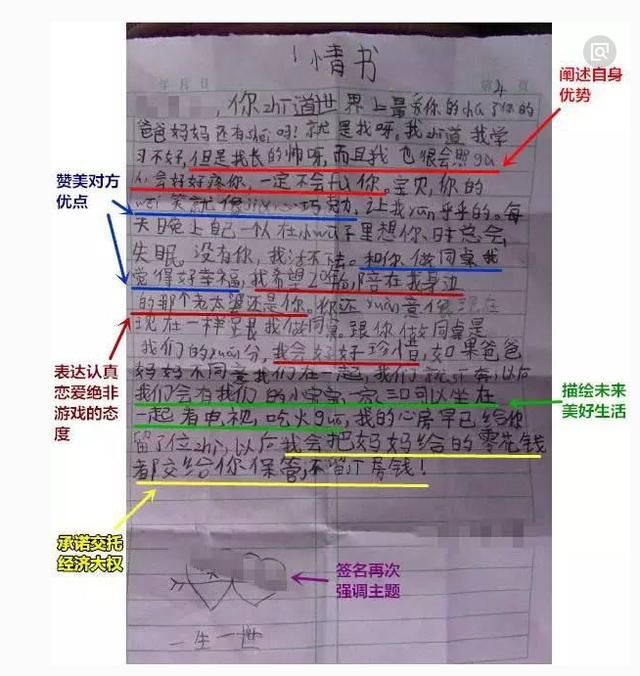 情书
年 月 日
第 4 页
，你zhi道世界上最爱你的
爸爸妈妈还有shei吗！就是我呀。我zhi道我学
习不好，但是我长的帅呀，而且我也很会照gu
会好好疼你，一定不会 你。宝贝，你的
wei笑就像 巧 ，让我 乎乎的。每
天晚上自己一 在 子里想你，时 会
失眠，没有你，我活不 。和你做同桌我
觉得好幸福，我希望 陪在我身边
的那个老太婆还是你。你还yuan意像现在
现在一样 跟我做同桌。跟你做同桌是
我们的yuan分，我会好好珍惜，如果爸爸
妈妈不同意我们在一起，我们就 奔，以后
我们会有我们的小宝宝，一家三口可以坐在
一起看电视，吃火guo，我的心房早已给你
留了位zhi，以后我会把妈妈给的零先钱
都交给你保管，不留 房钱！
一生一世
阐述自身
优势
赞美对方
优点
表达认真
恋爱绝非
游戏的态
度
描绘未来
美好生活
承诺交托
经济大权
签名再次
强调主题